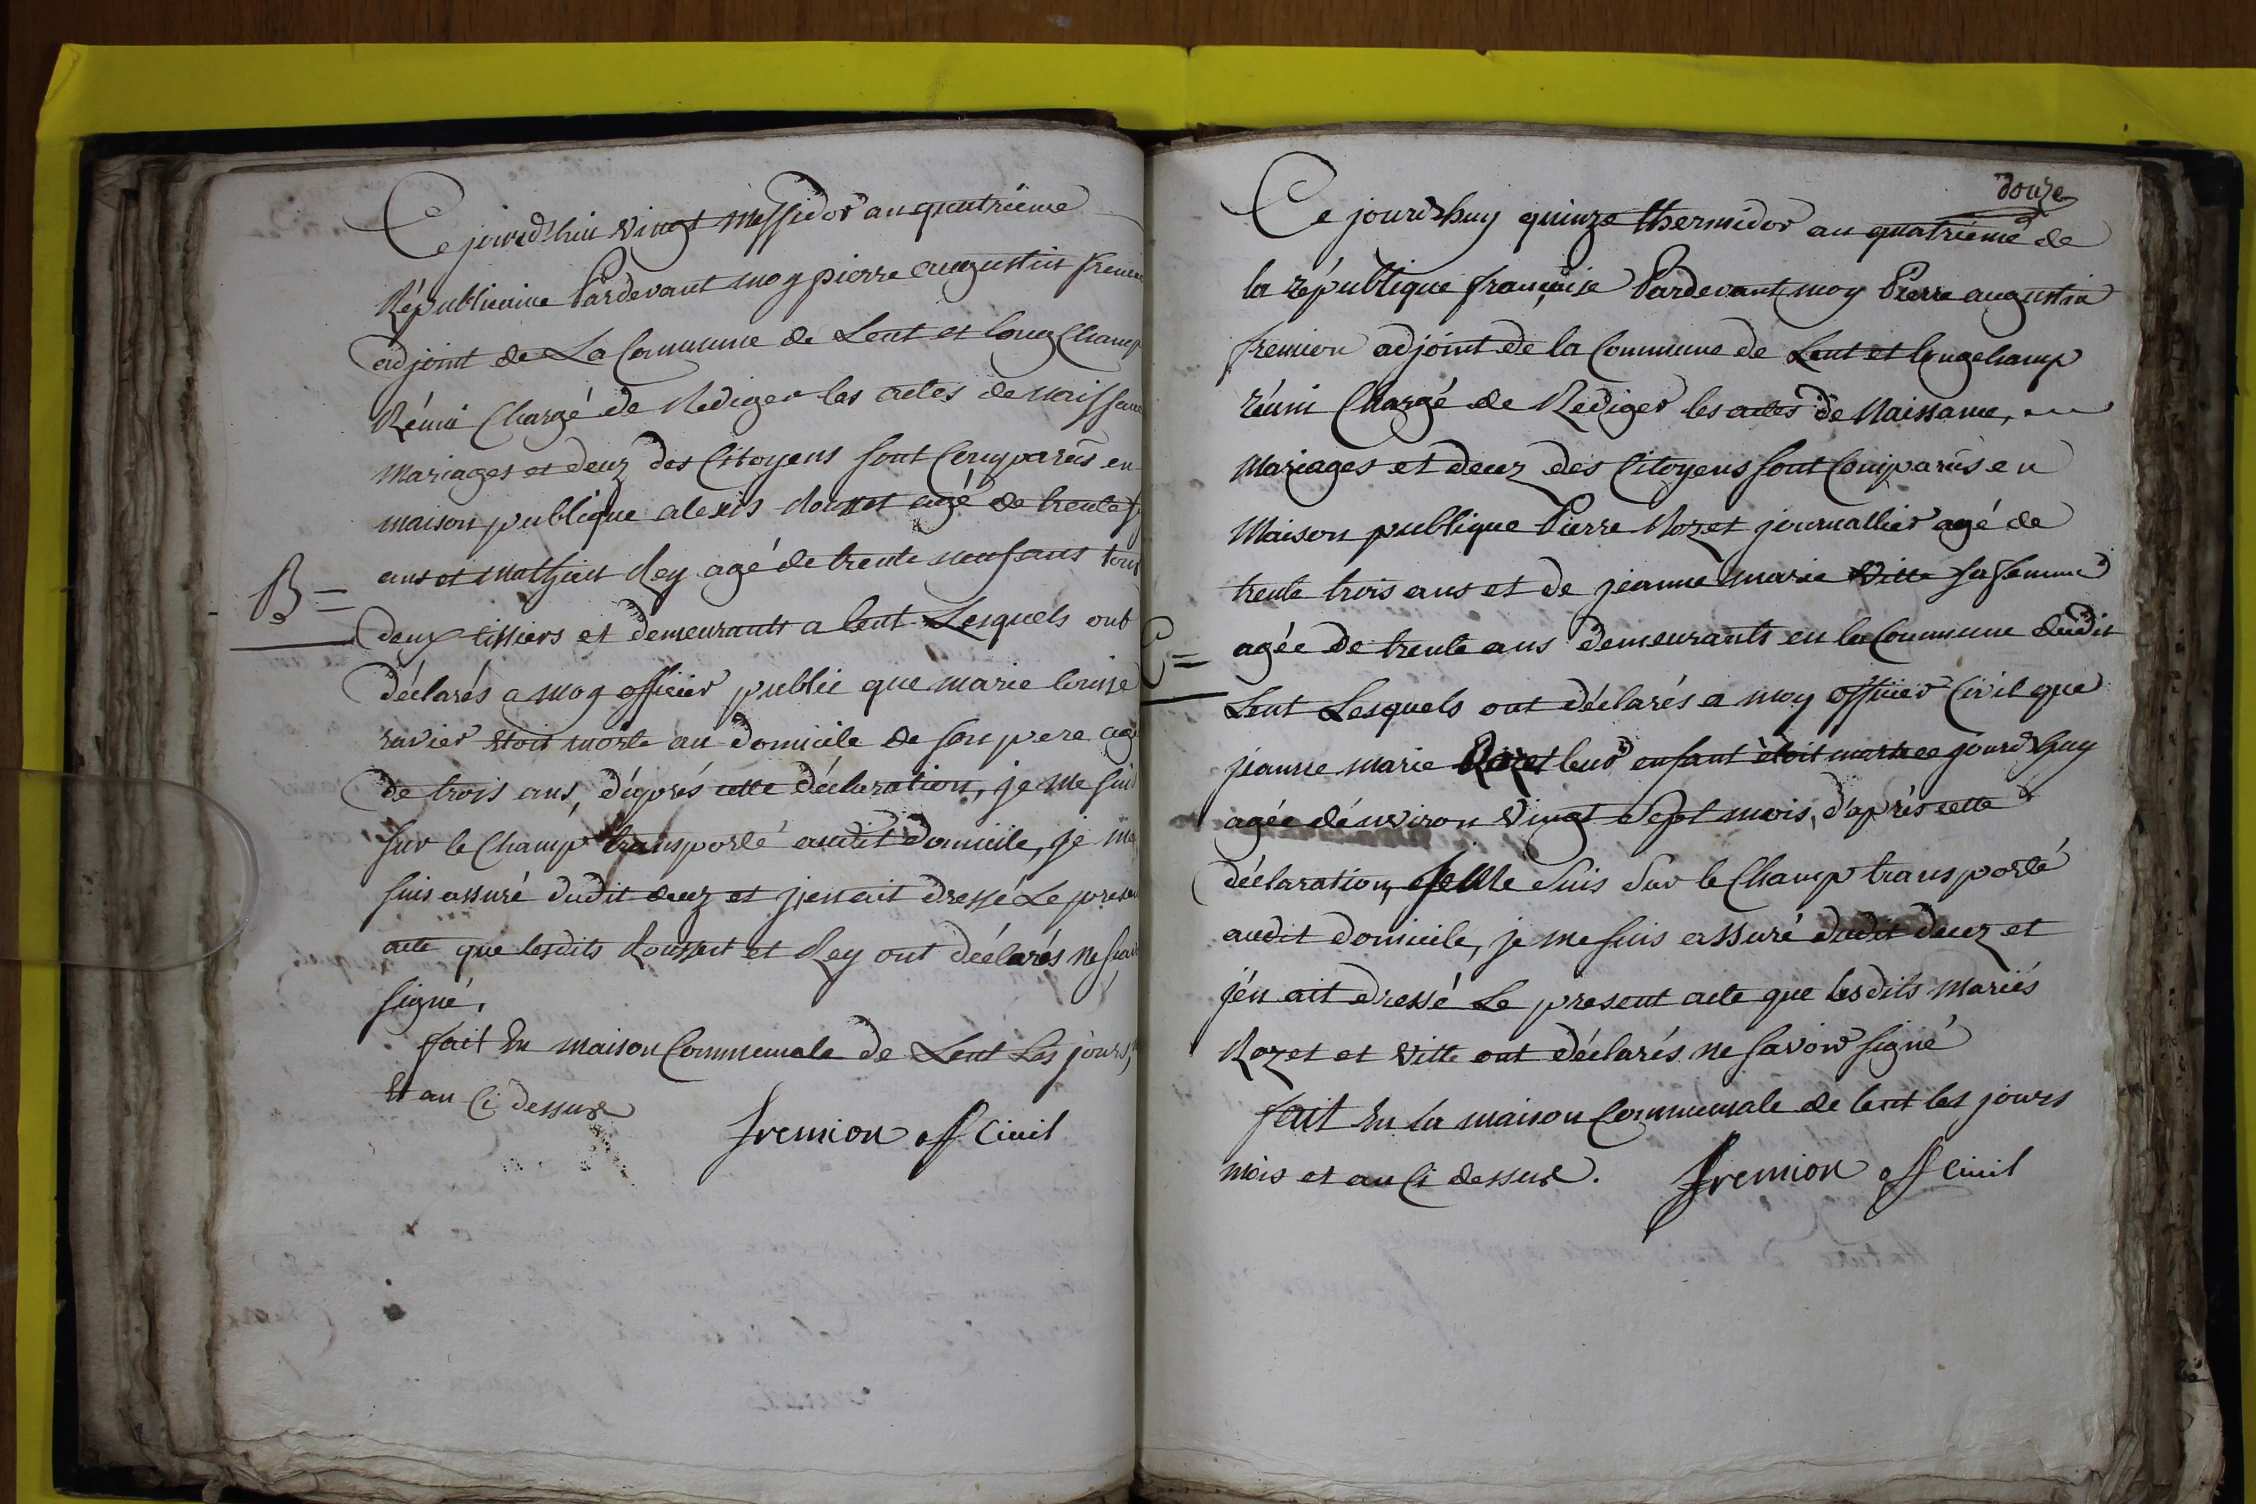 Ce jourd'hui vingt Messidor an quatrieme
Républicaine Pardevant moy pierre augustin fremion
adjoint de La Commune de Lent et longchamp
Réuni Chargé de Rediger les actes de naissance
Mariages et decez des Citoyens sont Comparus en
maison publique alexis Rousset agé de trente
ans et Mathieu Rey agé de trente neuf ans tous
B=
deux tissiers et demeurants a lent Lesquels ont
déclarés a moy officier public que marie louise
ravier étoit morte au domicile de son pere agé
de trois ans, d'après cette déclaration, je me suis
sur le Champ transporté audit domicile, je me
suis assuré dudit decez et j'en ait dressé Le present
acte que lesdits Rousset et Rey ont déclarés ne savoir
signé,
fait En maison Communale de Lent Les jours,
Et an Ci dessus
fremion off civil
douze
Ce jourd'huy quinze thermidor an quatrieme de
la république française Pardevant moy Pierre augustin
fremion adjoint de la Commune de Lent et longchamp
réuni Chargé de Rediger les actes de Naissance,
Mariages et decez des Citoyens sont Comparus en
Maison publique Pierre Rozet journallier agé de
trente trois ans et de jeanne marie Vitte sa femme
C=
agée de trente ans demeurants en la Commune dudit
Lent Lesquels ont déclarés a moy officier Civil que
jeanne marie Rozet leur enfant étoit morte ce jourd'huy
agée d'environ vingt Sept mois, d'après cette
déclaration, Je Me Suis Sur le Champ transporté
audit domicile, je me suis assuré dudit decez et
j'en ait dressé Le present acte que lesdits mariés
Rozet et Vitte ont déclarés ne savoir signé
fait En la maison Communale de lent les jours
mois et an Ci dessus. fremion off civil